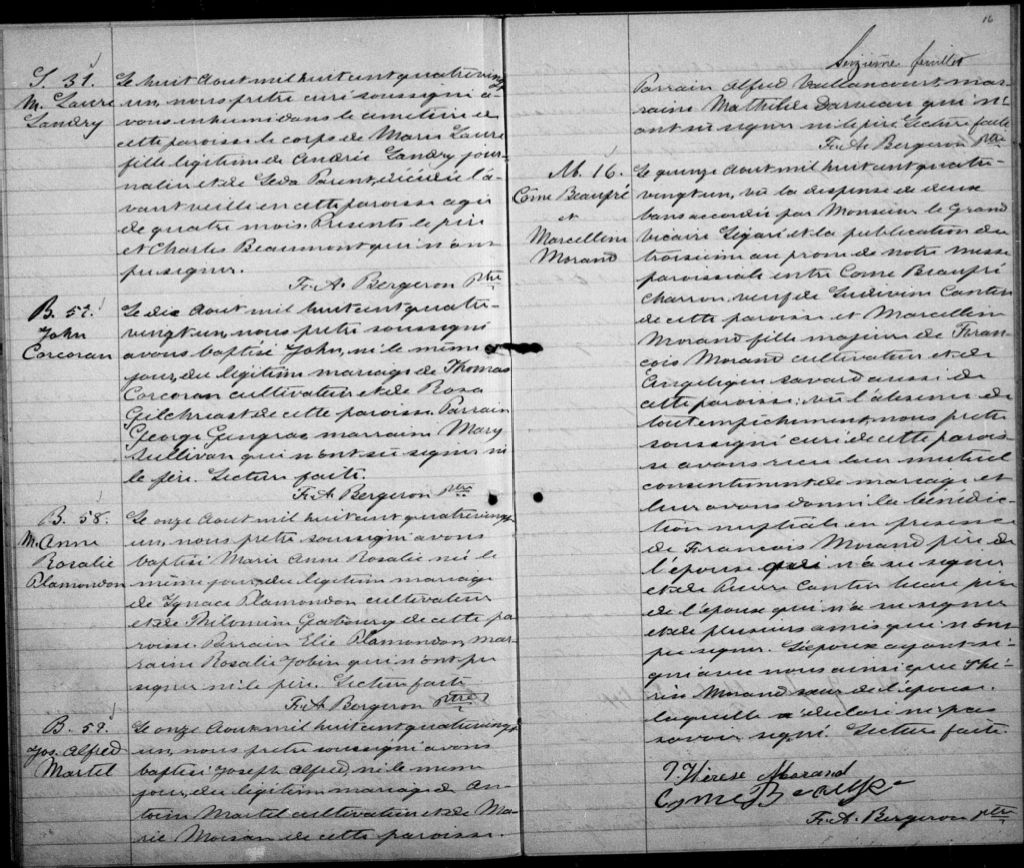 S. 31.
M. Laure
Landry
Le huit Aout mil huit cent quatrevingt
un, nous prêtre curé soussigné a-
vons inhumé dans le cimetière de
cette paroisse le corps de Marie Laure
fille légitime de André Landry jour-
nalier et de Leda Parent, décédée l'a-
vant veille en cette paroisse agée
de quatre mois. Présents le père
et Charles Beaumont qui n'ont
pu signer.
Fr. A. Bergeron Ptre
B. 57.
John
Corcoran
Le dix Aout mil huit cent quatre-
vingt un, nous prêtre soussigné
avons baptisé John, né le même
jour, du légitime mariage de Thomas
Corcoran cultivateur et de Rosa
Gilchreast de cette paroisse. Parrain
George Gingras marraine Mary
Sullivan qui n'ont su signer ni
le père. Lecture faite.
Fr. A. Bergeron ptre
B. 58.
M. Anne
Rosalie
Plamondon
Le onze Aout mil huit cent quatrevingt
un, nous prêtre soussigné avons
baptisé Marie Anne Rosalie née le
même jour, du légitime mariage
de Ignace Plamondon cultivateur
et de Philomène Gabourg de cette pa-
roisse. Parrain Elie Plamondon mar-
raine Rosalie Jobin qui n'ont pu
signer ni le père. Lecture faite
Fr. A. Bergeron Ptre
B. 59.
Jos. Alfred
Martel
Le onze Aout mil huit cent quatrevingt
un, nous prêtre soussigné avons
baptisé Joseph Alfred, né le même
jour, du légitime mariage de An-
toine Martel cultivateur et de Ma-
rie Moisan de cette paroisse.
16
Seizième feuillet
Parrain Alfred Vaillancourt, mar-
raine Mathilde Darveau qui n'-
ont su signer ni le père. Lecture faite
Fr. A. Bergeron Ptre
M. 16.
Côme Beaupré
et
Marcelline
Morand
Le quinze Aout mil huit cent quatre-
vingt un, vû la dispense de deux
bans accordée par Monsieur le Grand
Vicaire Légaré et la publication du
troisième au prone de notre messe
paroissiale entre Come Beaupré
Charron, veuf de Ludivine Cantin
de cette paroisse et Marcelline
Morand fille majeure de Fran-
çois Morand cultivateur et de
Angélique Savard aussi de
cette paroisse; vû l'absence de
tout empêchement, nous prêtre
soussigné curé de cette parois-
se avons reçu leur mutuel
consentement de mariage et
leur avons donné la bénédic-
tion nuptiale en présence
de François Morand père de
l'épouse qui n'a su signer
et de Pierre Cantin beau père
de l'époux qui n'a su signer
et de plusieurs amis qui n'ont
pu signer. L'époux ayant si-
gné avec nous ainsi que Thé-
rèse Morand sœur de l'épouse.
laquelle a déclaré ne pas
savoir signé. Lecture faite.
Thérèse Morand
Come Beaupre
Fr. A. Bergeron ptre